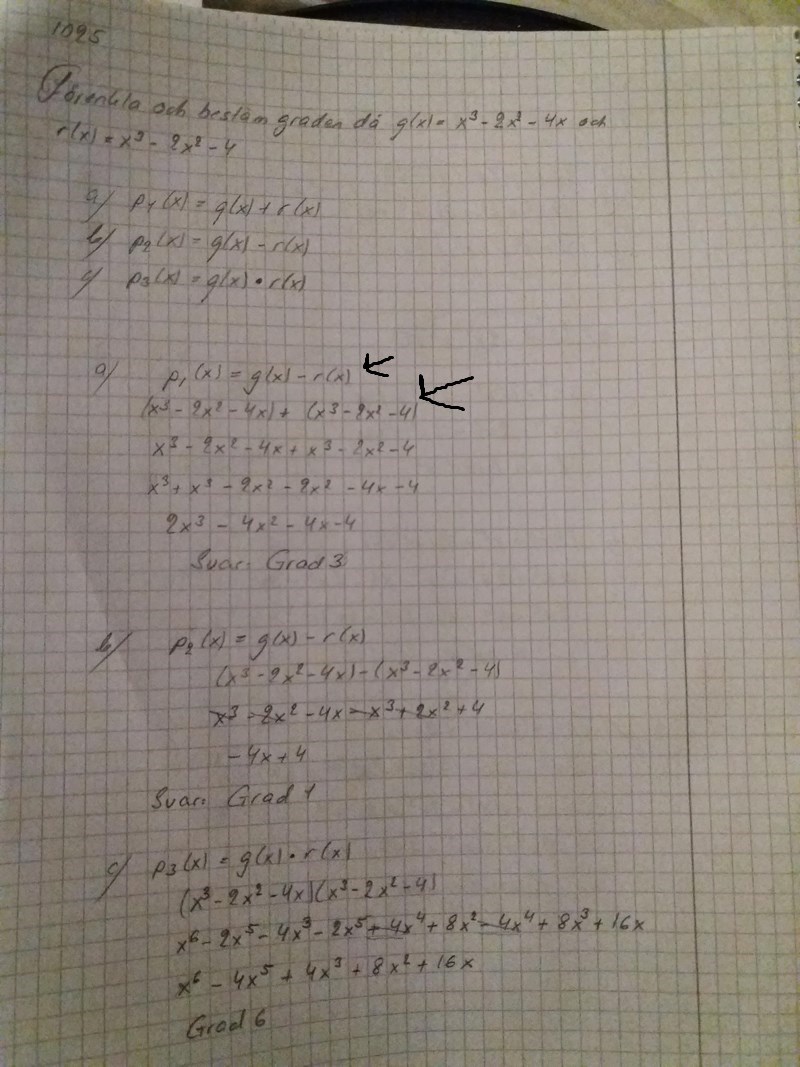 1095
Förenkla och bestäm graden då g(x) = x³ - 2x² - 4x och
r(x) = x³ - 2x² - 4
a) p₁(x) = g(x) + r(x)
b) p₂(x) = g(x) - r(x)
c) p₃(x) = g(x) • r(x)
a) p₁(x) = g(x) - r(x)
(x³ - 2x² - 4x) + (x³ - 2x² - 4)
x³ - 2x² - 4x + x³ - 2x² - 4
x³ + x³ - 2x² - 2x² - 4x - 4
2x³ - 4x² - 4x - 4
Svar: Grad 3
b) p₂(x) = g(x) - r(x)
(x³ - 2x² - 4x) - (x³ - 2x² - 4)
x³ - 2x² - 4x - x³ + 2x² + 4
- 4x + 4
Svar: Grad 1
c) p₃(x) = g(x) • r(x)
(x³ - 2x² - 4x)(x³ - 2x² - 4)
x⁶ - 2x⁵ - 4x³ - 2x⁵ + 4x⁴ + 8x² - 4x⁴ + 8x³ + 16x
x⁶ - 4x⁵ + 4x³ + 8x² + 16x
Grad 6